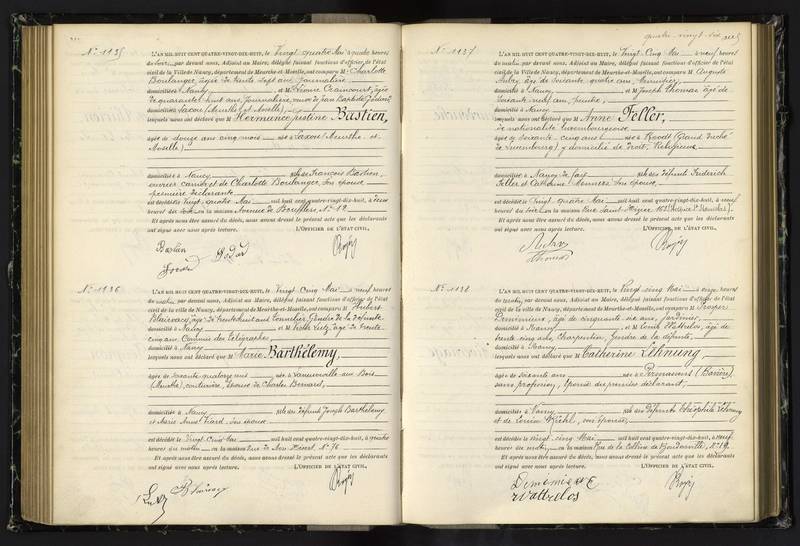 quatre-vingt-dix
N° 1135
L'AN MIL HUIT CENT QUATRE-VINGT-DIX-HUIT, le Vingt quatre Mai à quatre heures
du Soir, par devant nous, Adjoint au Maire, délégué faisant fonctions d'officier de l'état
civil de la Ville de Nancy, département de Meurthe-et-Moselle, ont comparu M. Charlotte
Boulanger, âgée de trente sept ans, Journalière
domiciliée à Nancy, et M. Crancourt, âgée
de quarante huit ans, Journalière, veuve de Jean Baptiste
domiciliée à Laxou (Meurthe et Moselle),
lesquels nous ont déclaré que M Hermance Justine Bastien,
âgée de douze ans cinq mois née à Laxou (Meurthe et
Moselle)
domiciliée à Nancy fille de François Bastien,
ouvrier et de Charlotte Boulanger, son épouse
première déclarante
est décédée le Vingt quatre Mai mil huit cent quatre-vingt-dix-huit, à deux
heures du soir en la maison Avenue de Boufflers, N° 12
Et après nous être assuré du décès, nous avons dressé le présent acte que les déclarants
ont signé avec nous après lecture. L'OFFICIER DE L'ÉTAT CIVIL,
N° 1136
L'AN MIL HUIT CENT QUATRE-VINGT-DIX-HUIT, le Vingt Cinq Mai à neuf heures
du matin, par devant nous, Adjoint au Maire, délégué faisant fonctions d'officier de l'état
civil de la ville de Nancy, département de Meurthe-et-Moselle, ont comparu M. Hubert
âgé de trente huit ans, Tonnelier, Gendre de la défunte
domicilié à Nancy et M. Lutz, âgé de trente
cinq ans, Commis des Télégraphes,
domicilié à Nancy
lesquels nous ont déclaré que M Marie Barthélemy,
âgée de soixante quatorze ans née à Laneuveville-aux-Bois
(Meurthe), couturière, Veuve de Charles Bernard,
domiciliée à Nancy fille des défunts Joseph Barthélemy
et Marie Anne Viard, son épouse
est décédée le Vingt cinq Mai mil huit cent quatre-vingt-dix-huit, à quatre
heures du matin en la maison Rue de Mon Désert, N° 76
Et après nous être assuré du décès, nous avons dressé le présent acte que les déclarants
ont signé avec nous après lecture. L'OFFICIER DE L'ÉTAT CIVIL,
N° 1137
L'AN MIL HUIT CENT QUATRE-VINGT-DIX-HUIT, le Vingt Cinq Mai à neuf heures
du matin, par devant nous, Adjoint au Maire, délégué faisant fonctions d'officier de l'état
civil de la Ville de Nancy, département de Meurthe-et-Moselle, ont comparu M. Auguste
Aubry, âgé de Soixante quatre ans, Menuisier,
domicilié à Nancy et M. Joseph Thomas, âgé de
Soixante neuf ans, peintre,
domicilié à Nancy
lesquels nous ont déclaré que M Anne Feller,
de nationalité Luxembourgeoise
âgée de Soixante cinq ans née à Roodt (Grand Duché
de Luxembourg) y domiciliée de droit, Religieuse
domiciliée à Nancy de fait fille des défunts Frederich
Feller et Catherine Monners, son épouse,
est décédée le Vingt quatre Mai mil huit cent quatre-vingt-dix-huit, à neuf
heures du soir en la maison Rue Saint
Et après nous être assuré du décès, nous avons dressé le présent acte que les déclarants
ont signé avec nous après lecture. L'OFFICIER DE L'ÉTAT CIVIL,
Aubry
Thomas
N° 1138
L'AN MIL HUIT CENT QUATRE-VINGT-DIX-HUIT, le Vingt cinq Mai à onze heures
du matin, par devant nous, Adjoint au Maire, délégué faisant fonctions d'officier de l'état
civil de la ville de Nancy, département de Meurthe-et-Moselle, ont comparu M. Prosper
âgé de cinquante six ans, Jardinier,
domicilié à Nancy et M. Émile Wattrelos, âgé de
trente cinq ans, Charpentier, gendre de la défunte,
domicilié à Nancy
lesquels nous ont déclaré que M Catherine Lehnung,
âgée de Soixante ans née à Pirmasens (Bavière)
sans profession, Épouse du premier déclarant
domiciliée à Nancy fille des défunts Théophile Lehnung
et de Louise son épouse,
est décédée le Vingt cinq Mai mil huit cent quatre-vingt-dix-huit, à neuf
heures du matin, en la maison Rue de la Colline de Boudonville, N° 19
Et après nous être assuré du décès, nous avons dressé le présent acte que les déclarants
ont signé avec nous après lecture. L'OFFICIER DE L'ÉTAT CIVIL,
Wattrelos